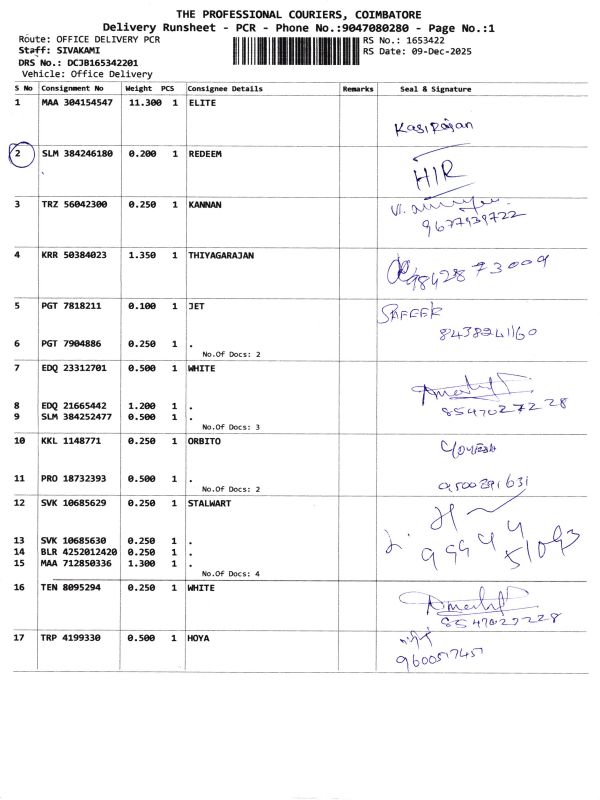 THE PROFESSIONAL COURIERS, COIMBATORE
Delivery Runsheet - PCR - Phone No.:9047080280 - Page No.:1
Route: OFFICE DELIVERY PCR RS No.: 1653422
Staff: SIVAKAMI RS Date: 09-Dec-2025
DRS No.: DCJB165342201
Vehicle: Office Delivery
S No Consignment No Weight PCS Consignee Details Remarks Seal & Signature
1 MAA 304154547 11.300 1 ELITE
Kasirajan
2 SLM 384246180 0.200 1 REDEEM
HIR
3 TRZ 56042300 0.250 1 KANNAN
9677939722
4 KRR 50384023 1.350 1 THIYAGARAJAN
9842873009
5 PGT 7818211 0.100 1 JET
SAFEEK
8438241160
6 PGT 7904886 0.250 1 .
No.Of Docs: 2
7 EDQ 23312701 0.500 1 WHITE
8 EDQ 21665442 1.200 1 .
8547027228
9 SLM 384252477 0.500 1 .
No.Of Docs: 3
10 KKL 1148771 0.250 1 ORBITO
11 PRO 18732393 0.500 1 .
9500291631
No.Of Docs: 2
12 SVK 10685629 0.250 1 STALWART
13 SVK 10685630 0.250 1 .
14 BLR 4252012420 0.250 1 .
99944
51093
15 MAA 712850336 1.300 1 .
No.Of Docs: 4
16 TEN 8095294 0.250 1 WHITE
8547027228
17 TRP 4199330 0.500 1 HOYA